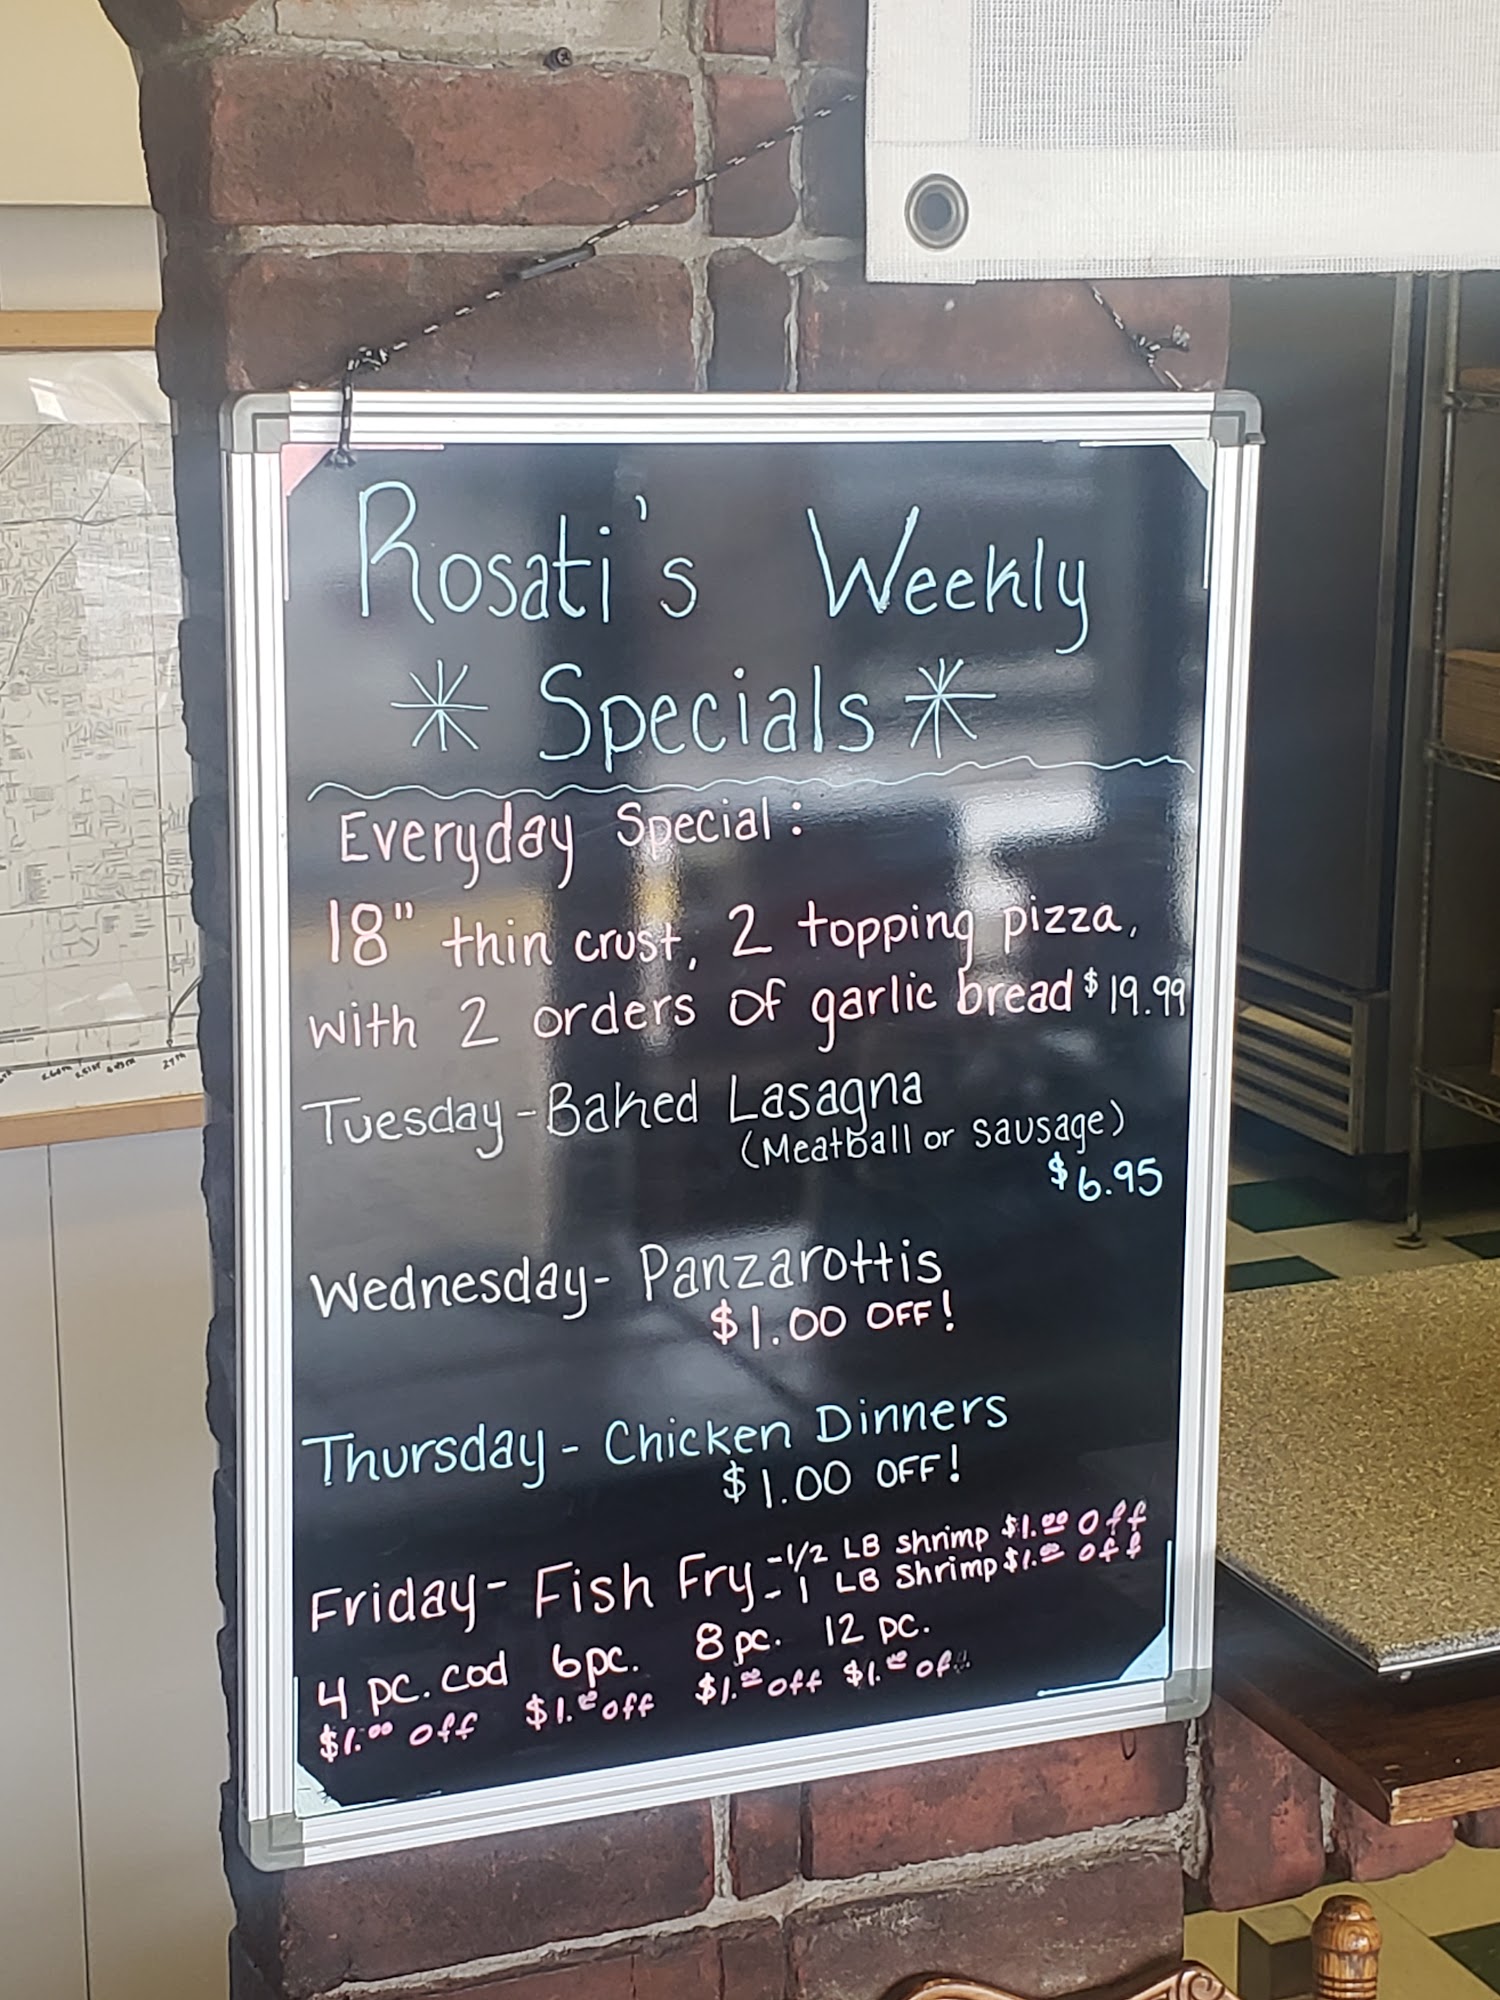 Rosati's Weekly
Specials
Everyday Special:
18" thin crust, 2 topping pizza,
with 2 orders of garlic bread $19.99
Tuesday - Baked Lasagna
(Meatball or sausage)
$6.95
Wednesday - Panzarottis
$1.00 OFF!
Thursday - Chicken Dinners
$1.00 OFF!
Friday - Fish Fry - 1/2 LB shrimp $1.00 off
- 1 LB Shrimp $1.00 off
4 pc. cod 6pc. 8 pc. 12 pc.
$1.00 off $1.00 off $1.00 off $1.00 off